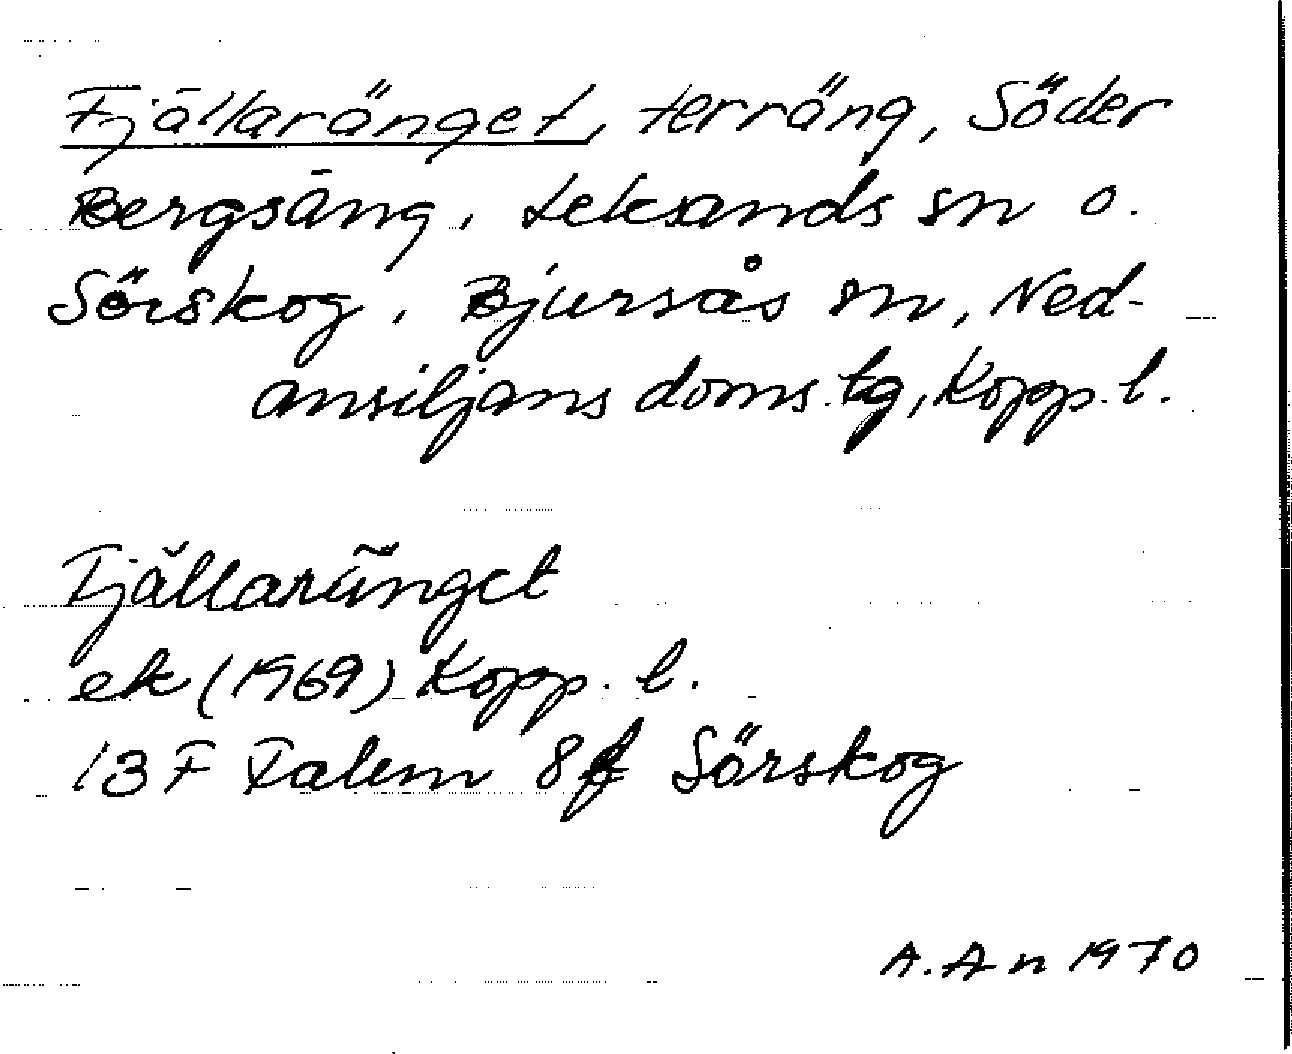 Fjällaränget, terräng, Söder
Bergsäng, Leksands sn o.
Sörskog, Bjursås sn, Ned-
ansiljans doms. tg, Kopp. l.
Fjällaränget
ek (1969) Kopp. l.
13 F Falun 8f Sörskog
A. A n 1970